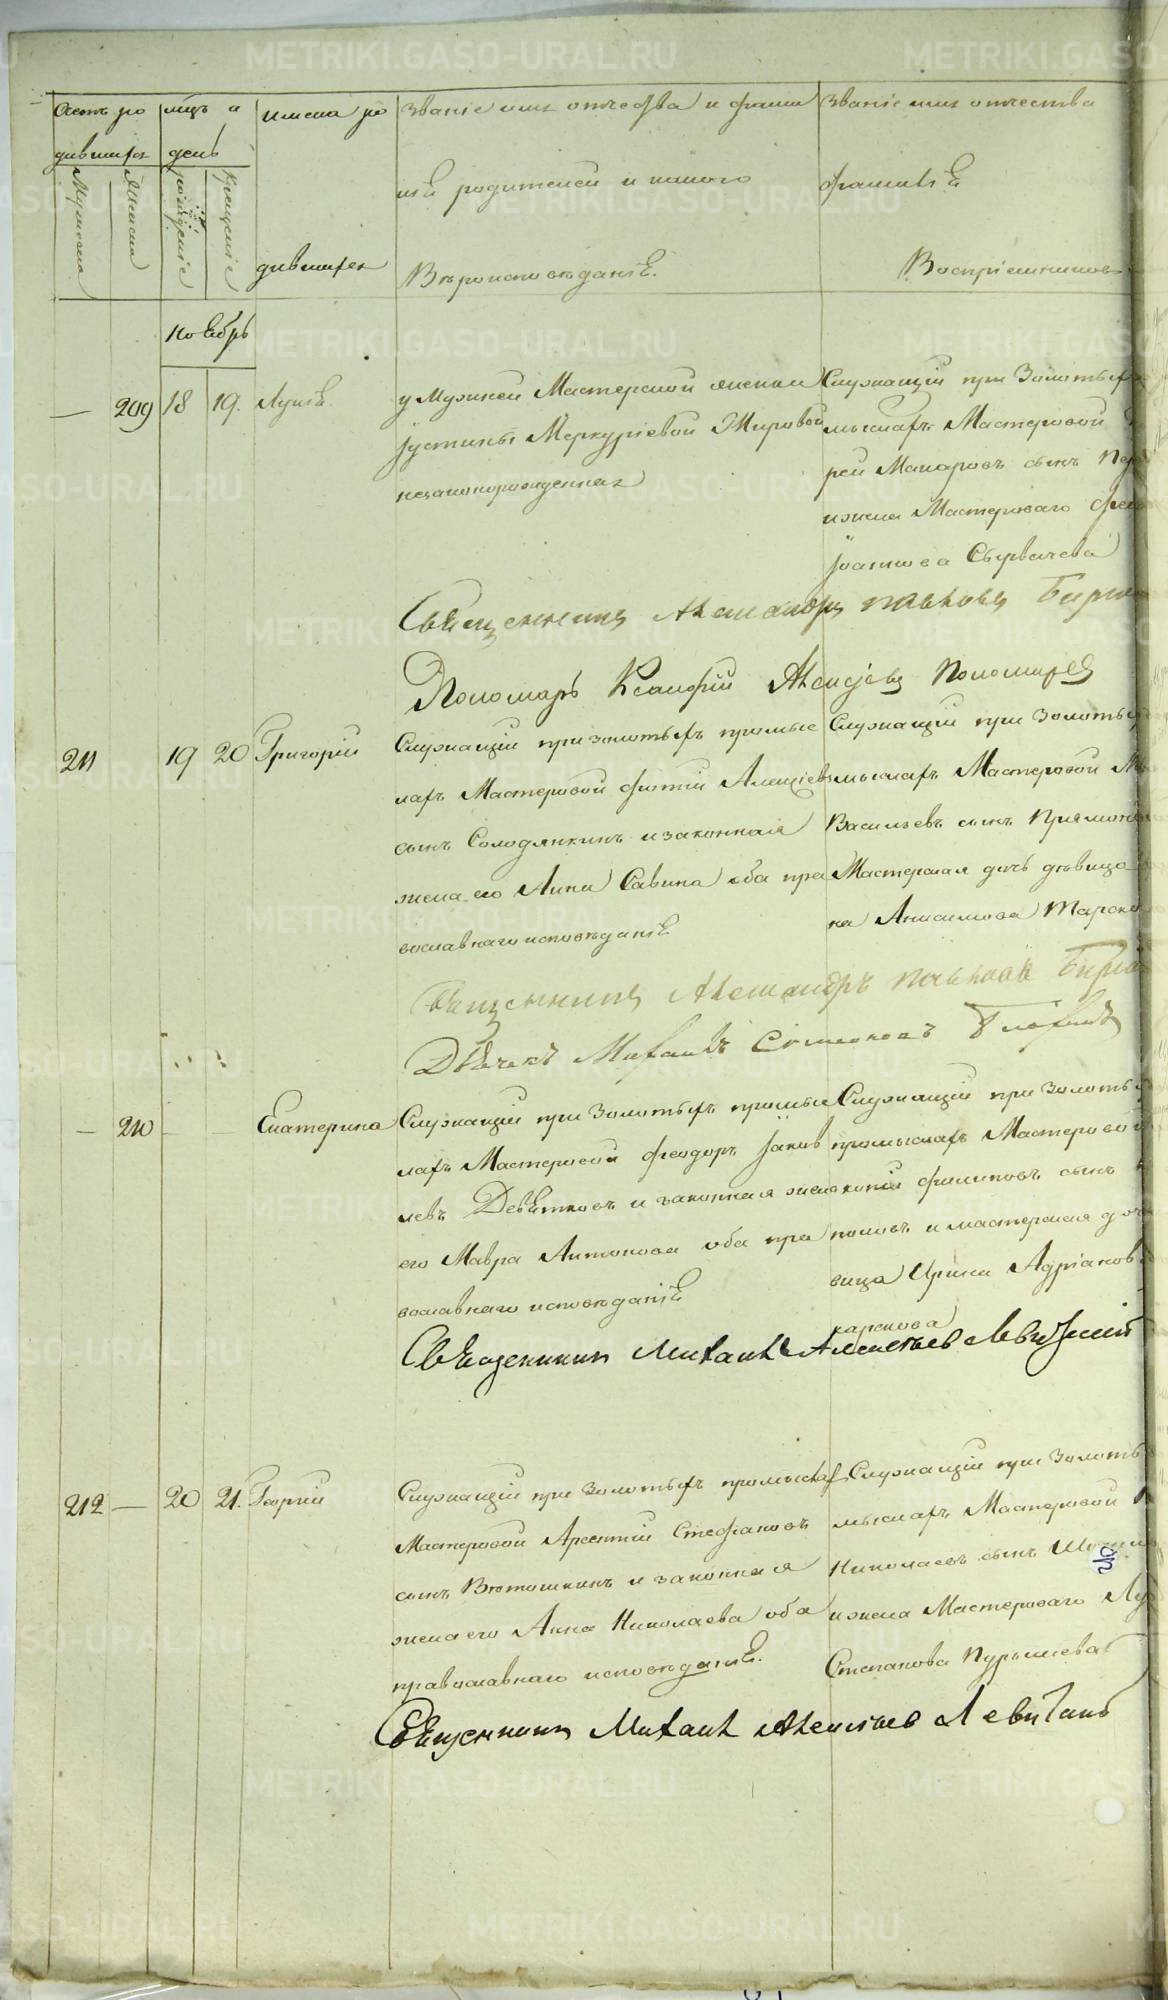 Счетъ ро
дившихся
Мужеска
Женска
мцъ и
день
рожденіе
Крещеніе
имена ро
дившихся
Званіе имя отчества и фами
ліѣ родителей и какого
Вѣроисповѣданіѣ.
Званіе имя отчества
фамиліѣ
Воспріемниковъ
ноѣбрь
— 209 18 19. Лукіѣ
у Мужней Мастерской женки
Јустины Меркуріевой Жировой
незаконорожденная
Служащій при Золотыхъ
мыслахъ Мастеровой
рей Макаровъ сынъ
и жена Мастероваго
Јоаннова
Свѣщенникъ Александръ Павловъ
Пономарь Ксанфій Алексјевъ Пономаревъ
211 19 20 Григорій
Служащій при золотыхъ промыс
лахъ Мастеровой Фотій Алексіевъ
сынъ Солодянкинъ и законная
жена его Анна Савина оба пра
вославнаго исповѣданіѣ
Служащій при Золотыхъ
мыслахъ Мастеровой
Васильевъ сынъ
Мастерская дочь дѣвица
на Анисимова
Свѣщенникъ Александръ Павловъ
Дьѣчекъ Михаилъ Симеоновъ
— 210 — — Екатерина
Служащій при Золотыхъ промыс
лахъ Мастеровой Феодоръ Јаков
левъ Девѣтковъ и законная жена
его Мавра Антонова оба пра
вославнаго исповѣданіѣ
Служащій при Золоты
промыслахъ Мастеровой
Филиповъ сынъ
повъ и мастерская доч
вица Ирина Адріанов
Свѣщенникъ Михаилъ Алексѣевъ Левитскій
212 — 20 21. Георгій
Служащій при Золотыхъ промыслах
Мастеровой Арсентій Стефановъ
сынъ Вятошкинъ и законная
жена его Анна Николаева оба
православнаго исповѣданіѣ.
Служащій при Золоты
мыслахъ Мастеровой
Николаевъ сынъ
и жена Мастероваго
Степанова Пурышева
Свѣщенникъ Михаилъ Алексѣевъ
METRIKI.GASO-URAL.RU